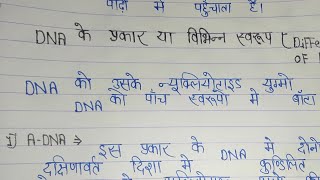 पादा में पहुँचाता है।
DNA के प्रकार या विभिन्न स्वरूप (Diffe
OF
DNA को उसके न्यूक्लियोटाइड युग्मो
DNA को पाँच स्वरूपों में बाँटा
i) A-DNA ⇒
इस प्रकार के DNA में दोनो
दक्षिणावर्त दिशा में कुण्डलित